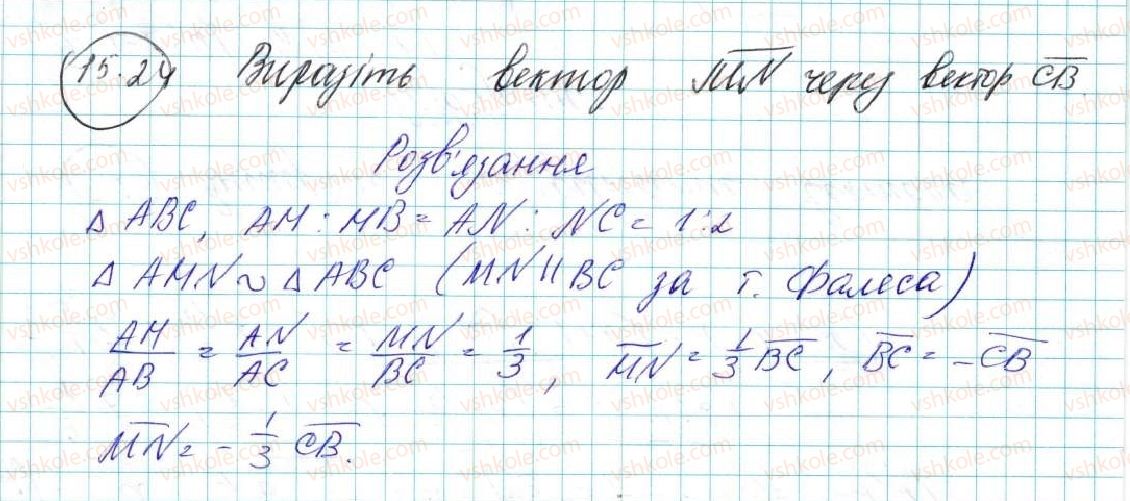 15.24 Виразіть вектор \overline{MN} через вектор \overline{CB}.
Розв'язання
Δ ABC, AM : MB = AN : NC = 1:2
Δ AMN ~ Δ ABC (MN || BC за т. Фалеса)
AM/AB = AN/AC = MN/BC = 1/3, \overline{MN} = 1/3 \overline{BC}, \overline{BC} = -\overline{CB}
\overline{MN} = - 1/3 \overline{CB}.